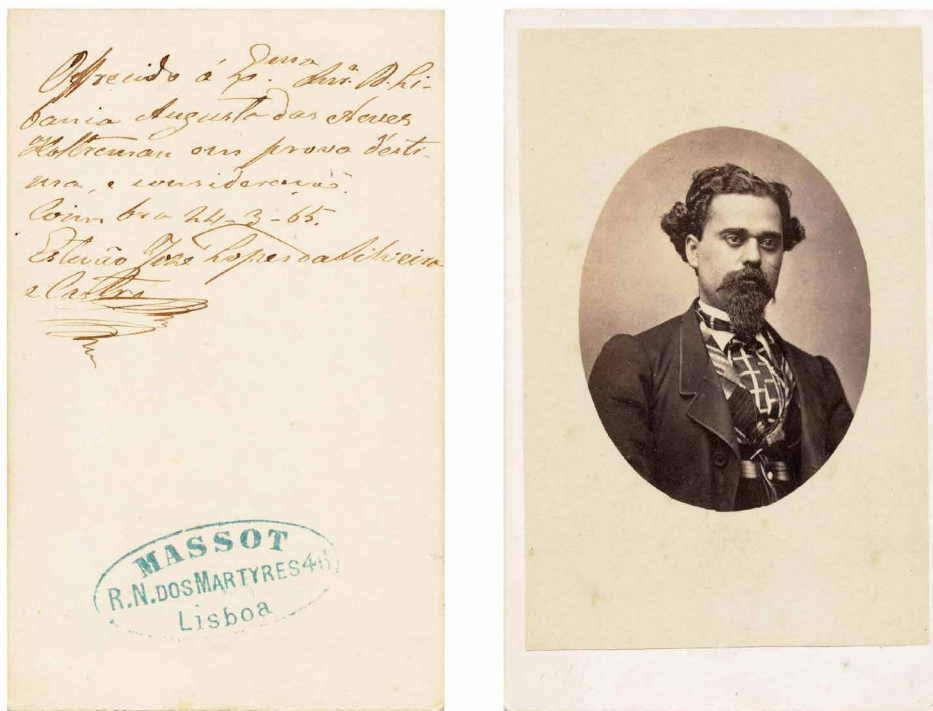 Offrecido á Exma
Snrª. D. Li-
bania Augusta das Neves
Holtreman em prova d'esti-
ma, e consideração.
Coimbra 24-3-65.
Estevão José Lopes da Silveira
e Castro
MASSOT
R.N.DOS MARTYRES 46
Lisboa